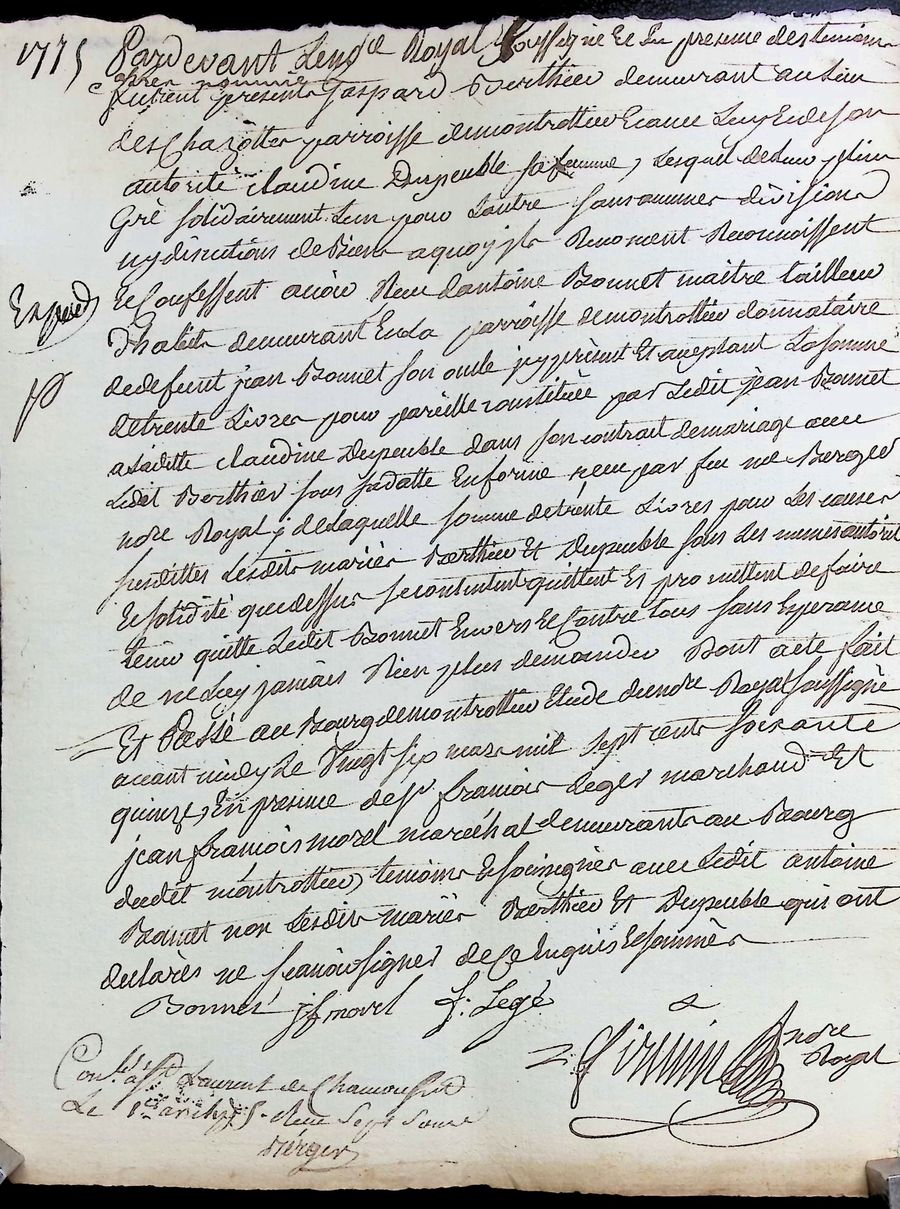 1775
Pardevant Le no.re Royal soussigné Et En presence des temoins
apres nommés
furent presents Gaspard Berthier demeurant au Lieu
des Chazottes parroisse de montrottier Et avec Luy Et de son
autorité Claudine Dupeuble sa femme, Lesquels de Leur plein
Gré solidairement L'un pour L'autre sans aucunes divisions
ny discutions de Biens a quoy ils Renoncent Reconnoissent
Expedié
Et Confessent avoir Reçu d'antoine Bonnet maitre tailleur
D'habits demeurant En La parroisse de montrottier donnataire
de defunt jean Bonnet son oncle jcy present Et acceptant La somme
de trente Livres pour pareille constituée par Ledit jean Bonnet
a Laditte Claudine Dupeuble dans son contrat de mariage avec
Ledit Berthier sous sa datte En forme reçu par feu me Berger
no.re Royal ; de Laquelle somme de trente Livres pour Les causes
susdittes Lesdits mariés Berthier Et Dupeuble sous Les memes autorité
Et solidité que dessus se contentent quittent Et promettent de faire
tenir quitte Ledit Bonnet Envers Et Contre tous sans Esperance
de ne Luy jamais Rien plus demander Dont acte fait
Et Passé au Bourg de montrottier Etude du no.re Royal soussigné
avant midy Le vingt six mars mil sept cents soixante
quinze, En presence de sr françois Leger marchand Et
jean françois morel maréchal demeurants au Bourg
dudit montrottier, temoins Et soussignés avec Ledit antoine
Bonnet non Lesdits mariés Berthier Et Dupeuble qui ont
declarés ne sçavoir signer de ce Enquis Et sommés
Bonnet j f morel f. Legé
Firmin no.re
Royal
Con.lé à St Laurent de Chamousset
Le 1er avril 1775 Reçu Sept sous
Berger